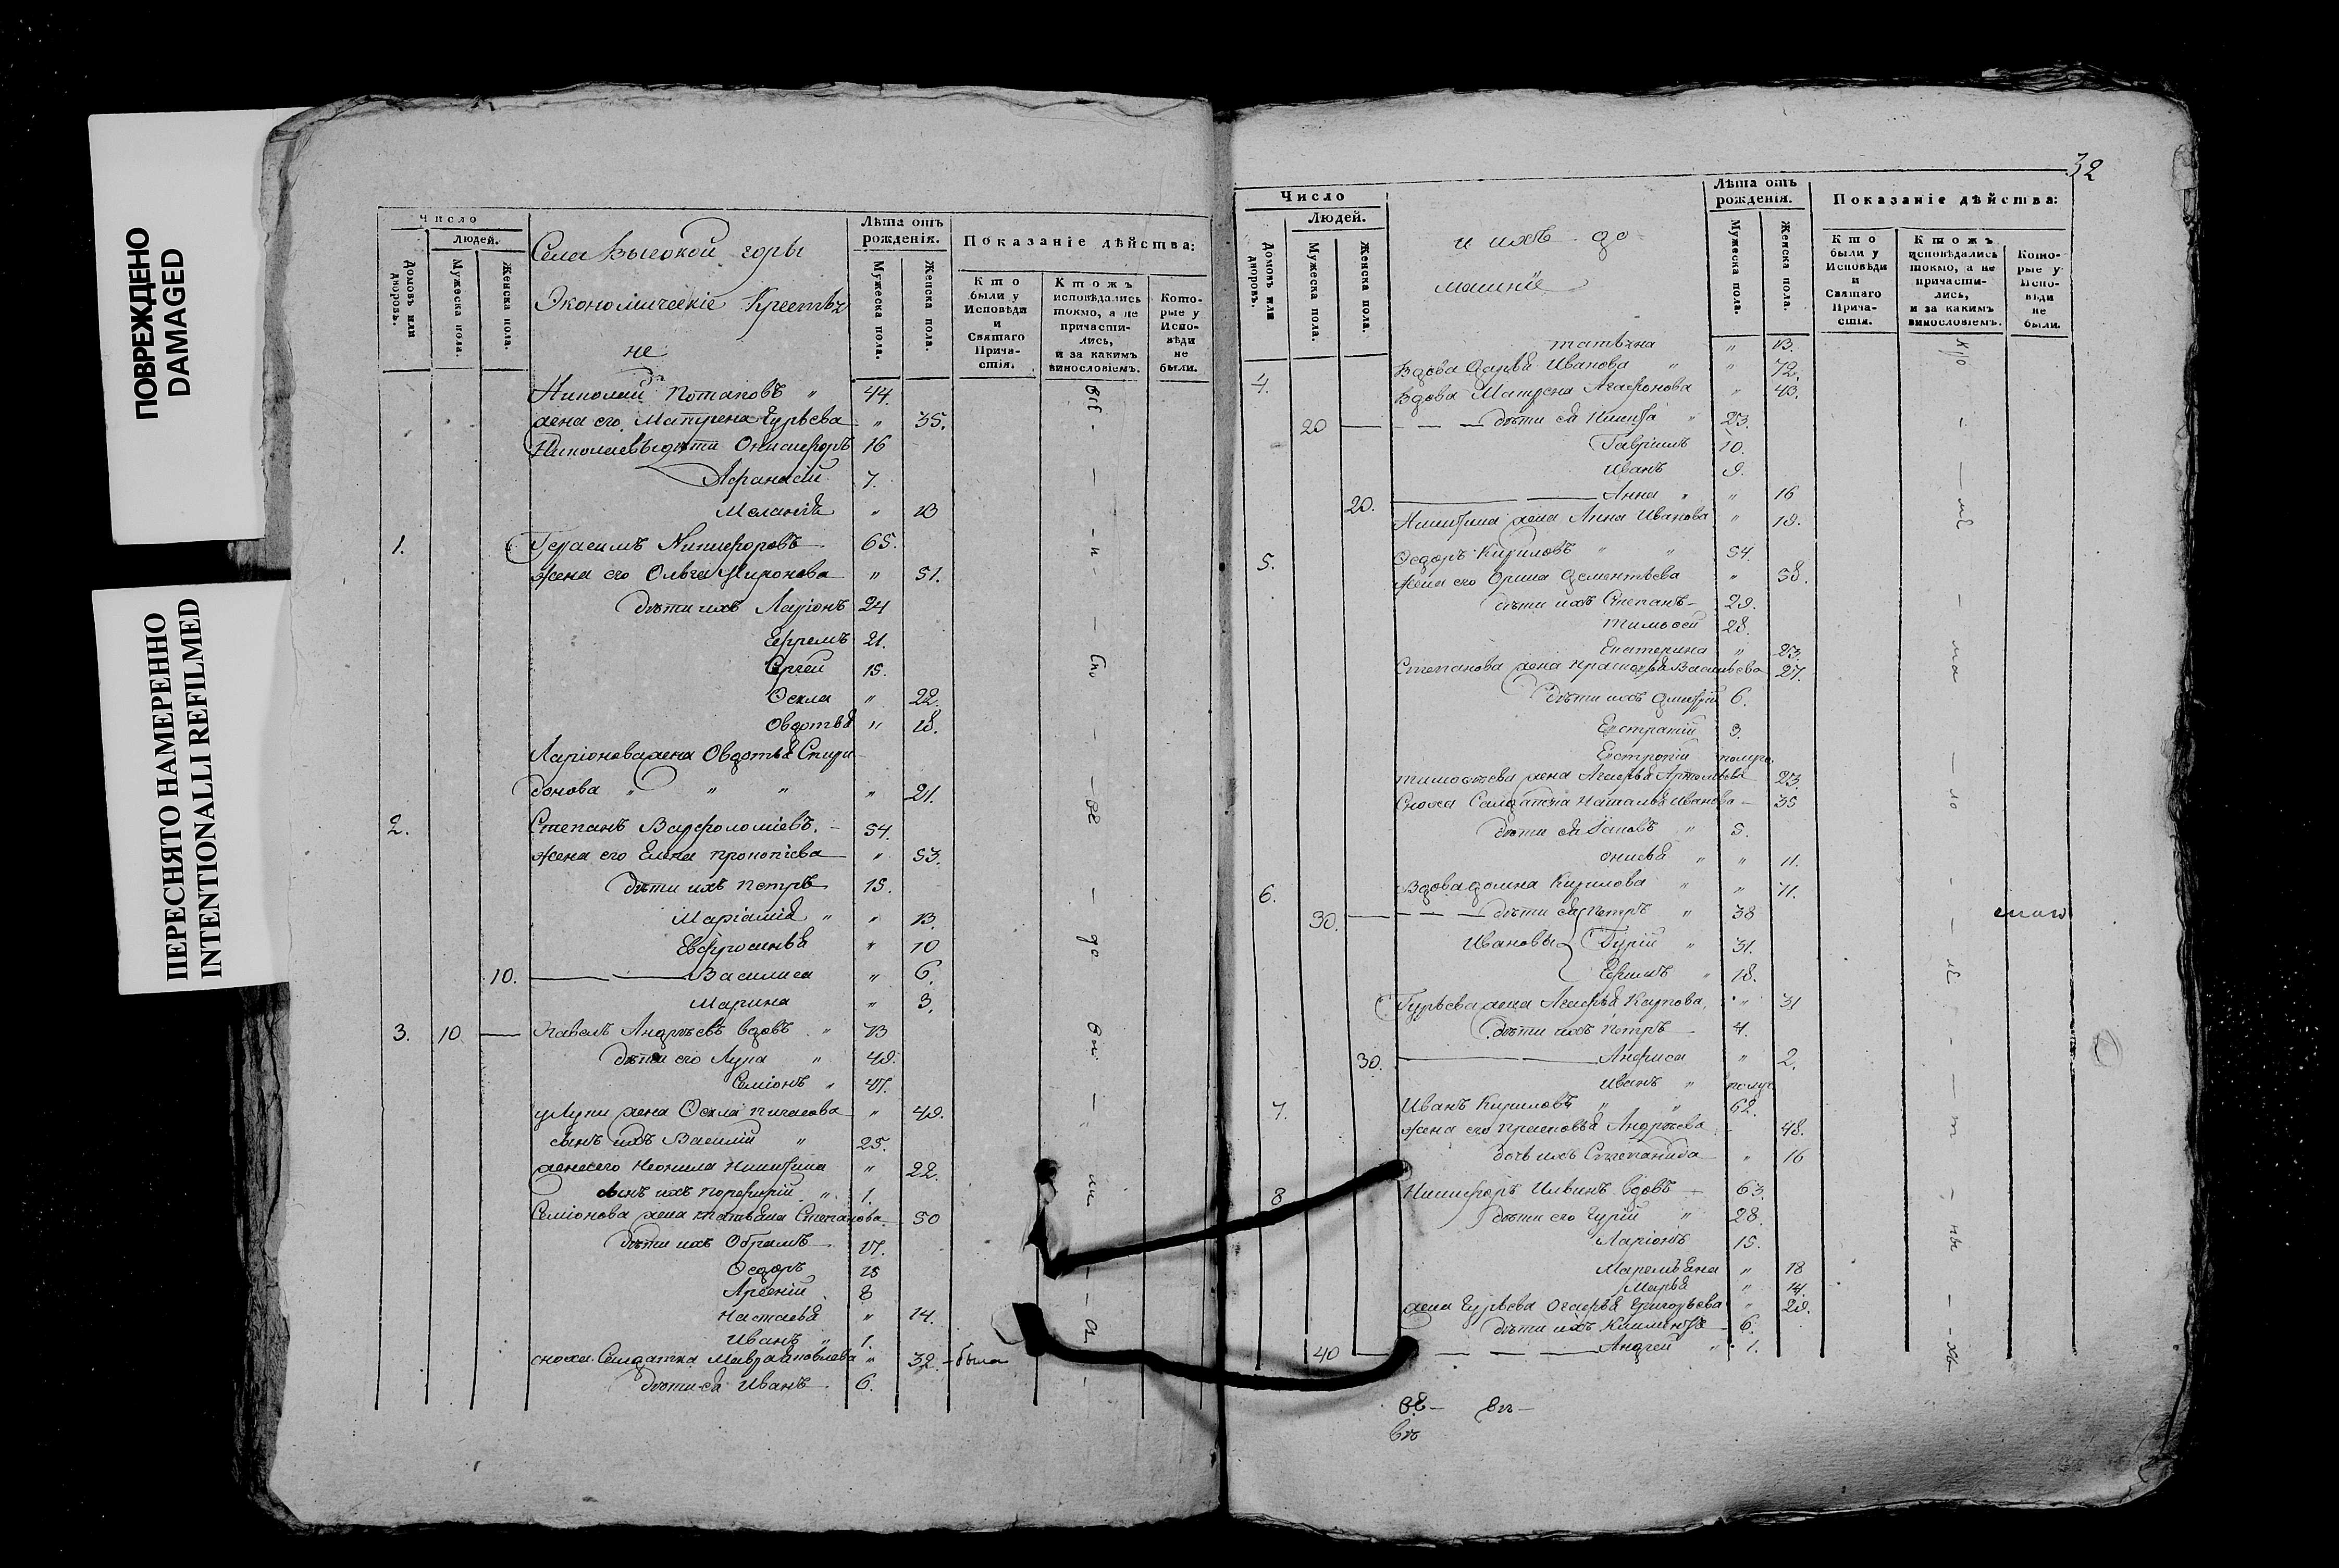 ПОВРЕЖДЕНО
DAMAGED
ПЕРЕСНЯТО НАМЕРЕННО
INTENTIONALLI REFILMED
Число
Людей.
Домовъ или дворовъ.
Мужеска пола.
Женска пола.
Села Высокой горы
Экономическіе Крестья
не
Лѣта отъ рожденія.
Мужеска пола.
Женска пола.
Показаніе дѣйства:
Кто были у Исповѣди и Святаго Причастія.
Ктожъ исповѣдались токмо, а не причастились, и за какимъ винословіемъ.
Которые у Исповѣди не были.
Николай Потаповъ " 44.
жена его Матрена Гурьева " 35.
Николаевы дѣти Онисифоръ 16
Афанасій 7.
Меланія " 13
1. Герасимъ Никифоровъ 65.
жена его Ольга Миронова " 51.
дѣти ихъ Ларіонъ 24
Ефремъ 21.
Сергей 15.
Фекла " 22.
Овдотья " 18.
Ларіонова жена Овдотья Спири
донова " " " " 21.
2. Степанъ Варфоломіевъ. 54.
жена его Елена Прокопіева " 53.
дѣти ихъ Петръ 15.
Маріамія " " 13.
Евфросинья " 10
10. Василиса " 6.
Марина " 3.
3. 10 Павелъ Андрѣевъ вдовъ " 73
дѣти его Лупа " 48.
Семіонъ " 47.
у Лупи жена Фекла " 49.
сынъ ихъ Василій " 25.
жена его Неонила Никитина " 22.
сынъ ихъ Порфирій " 1.
Семіонова жена Татьяна Степанова 50
дѣти ихъ Обрамъ 17.
Федоръ 15
Арсеній 8
Настасья " 14.
Иванъ " 1.
сноха Салдатка Мавра Яковлева " 32. была
дѣти ея Иванъ 6.
32
Число
Людей.
Домовъ или дворовъ.
Мужеска пола.
Женска пола.
и ихъ до
машніе
Лѣта отъ рожденія.
Мужеска пола.
Женска пола.
Показаніе дѣйства:
Кто были у Исповѣди и Святаго Причастія.
Ктожъ исповѣдались токмо, а не причастились, и за какимъ винословіемъ.
Которые у Исповѣди не были.
Татьяна " 13.
Вдова Дарья Иванова " " 72.
4. Вдова Матрена Агафонова " 43.
20 дѣти ея Никита " 23.
Гавріилъ 10.
Иванъ 9.
20. Анна " " 16
Никитина жена Анна Иванова " 19.
5. Федоръ Кириловъ " " 54.
жена его Орина Дементьева " 58.
дѣти ихъ Степанъ 29.
Тимофей 28.
Екатерина " 23.
Степанова жена Прасковья Васильева 27.
дѣти ихъ Дмитрій 6.
Евстратій 3.
Тимофеева жена Агафья 23.
Сноха Салдатка Наталья Иванова 35
дѣти ея Іаковъ " 5.
" " 11.
6. Вдова Домна Кирилова " " 71.
30. дѣти ея Петръ " 38
Ивановы Гурій " 31.
Ефимъ " 18.
Гурьева жена Агафья Карпова " 31
дѣти ихъ Петръ 4.
30. Анфиса " 2.
Иванъ " полуг
7. Иванъ Кириловъ " " 62.
жена его Прасковья Андрѣева 48.
дочь ихъ Степанида " 16
8 Никифоръ Ильинъ вдовъ 63.
дѣти его Гурій " 28.
Ларіонъ 15.
Маремьяна " 18
Марья " 14.
жена Гурьева Огафья Григорьева " 29.
дѣти ихъ Климентъ 6.
40 Андрей " 1.